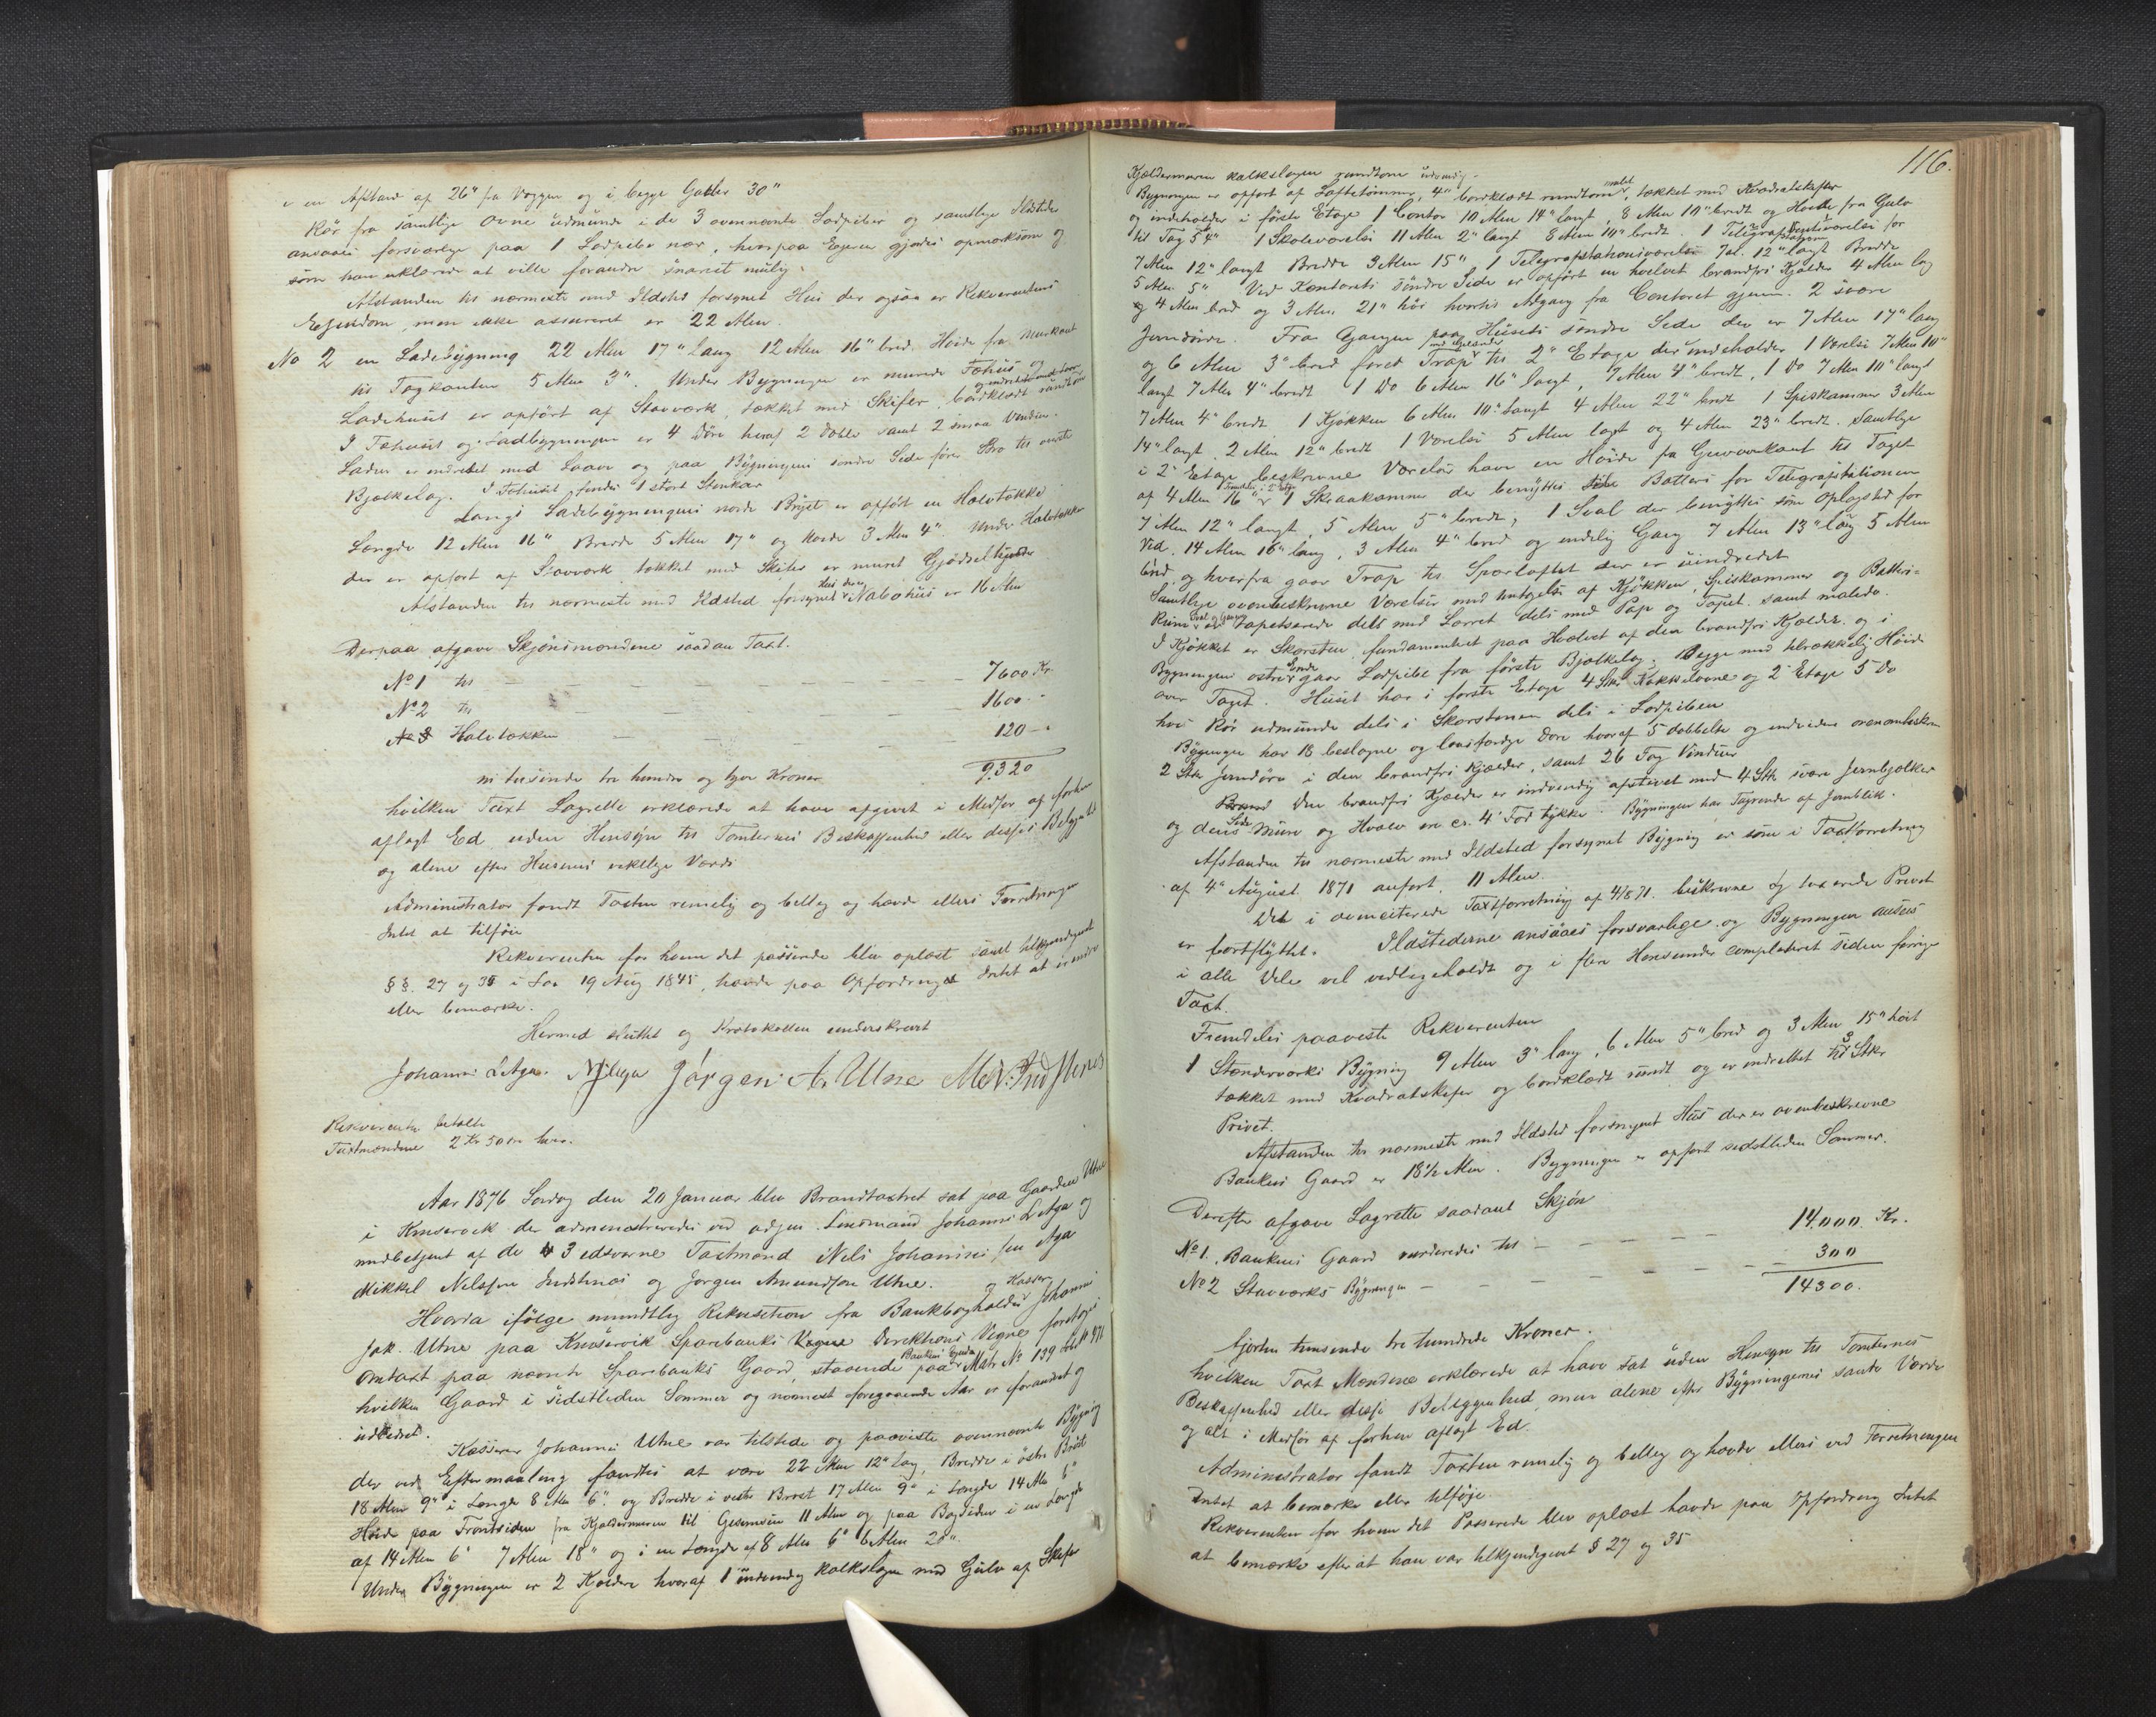 en Afstand af 26" fra Væggen og i begge Gavler 30"
Rør fra samtlige Ovne udmunde i de 3 ovennævnte Lodpiber og samtlige Ildsteder
ansaaes forsvarlige paa 1 Lodpibe nær, hvorpaa Eieren gjordes opmærksom og
som han erklærede at ville forandre snarest mulig.
Afstanden til nærmeste med Ildsted forsynet Hus der ogsaa er Rekvirentens
Eiendom, men ikke assureret er 22 Alen.
No 2 en Ladebygning 22 Alen 17" lang 12 Alen 16" bred. Høide fra Murkant
til Tagkanten 5 Alen 3". Under Bygningen er murede Fæhus og
Ladehuset er opført af Stavværk, tækket med Skifer, bordklædt rundtom
I Fæhuset og Ladbygningen er 4 Døre heraf 2 doble samt 2 smaa Vinduer.
Laden er indredet med Laave og paa Bygningens søndre Side fører Bro til øverste
Bjælkelag. I Fæhuset findes 1 stort Stenkar
Langs Ladebygningens nordre Bryst er opført en Halvtække
Længde 12 Alen 16" Bredde 5 Alen 17" og Høide 3 Alen 4". Under Halvtækket
der er opført af Stavværk tækket med Skifer er muret Gjødselkjælder
Afstanden til nærmeste med Ildsted forsynet Nabohus er 16 Alen
Derpaa afgave Skjønsmændene saadan Taxt.
No 1 til — — — — — 7600 Kr.
No 2 til — — — — — 1600 -
No 3 Halvtækken — — — 120 -
ni tusinde tre hundre og tyve Kroner 9320
hvilken Taxt Lagrette erklærede at have afgivet i Medfør af forhen
aflagt Ed uden Hensyn til Tomternes Beskaffenhed eller disses Beliggenhed
og alene efter Husenes virkelige Værdi
Administrator fandt Taxten rimelig og billig og havde ellers Forretningen
Intet at tilføie
Rekvirenten for hvem det passerede blev oplæst samt tilkjendegivet
§§. 27 og 35 i Lov 19 Aug 1845, havde paa Opfordring Intet at erindre
eller bemærke.
Hermed sluttet og Protokollen underskrevet
Johannes L Aga. N J Aga Jørgen A. Utne
Rekvirenten betalte
Taxtmændene 2 Kr 50 øre hver.
Aar 1876 Lørdag den 20 Januar blev Brandtaxtret sat paa Gaarden Utne
i Kinservik der administreredes ved Lensmand Johannes L Aga og
medbetjent af de 3 edsvorne Taxtmænd Nels Johannessen Aga
Mikkel Nelssen Indstenæs og Jørgen Amundsen Utne.
Hvorda ifølge mundtlig Rekvisition fra Bankbogholder og Kasserer Johannes
Jak. Utne paa Kinservik Sparebanks Direktions Vegne foretoges
Omtaxt paa nævnte Sparebanks Gaard, staaende paa Bankens Eiendom Matr No 139
hvilken Gaard i sidstleden Sommer og nærmest foregaaende Aar er forandret og
udbedret.
Kasserer Johannes Utne var tilstede og paaviste ovennævnte Bygning
der ved Eftermaaling fandtes at være 22 Alen 12" lang, Bredde i østre Bryst
18 Alen 9" i Længde 8 Alen 6" og Bredde i vestre Bryst 17 Alen 9" i Længde 14 Alen 6"
Høide paa Frontsiden fra Kjældermuren til Gesimsen 11 Alen og paa Bagsiden i en Længde
af 14 Alen 6" 7 Alen 18" og i en Længde af 8 Alen 6" 6 Alen 20".
Under Bygningen er 2 Kjældere hvoraf 1 indvendig kalkslagen med Gulv af Skifer
116.
Kjældermuren kalkslagen rundtom udvendig.
Bygningen er opført af Laftetømmer, 4" bordklædt rundtom, malet, tækket med Kvadratskifer
og indeholder i første Etage 1 Contor 10 Alen 14" langt, 8 Alen 10" bredt og Høide fra Gulv
til Tag 5 4" 1 Skoleværelse 11 Alen 2" langt 8 Alen 10" bredt. 1 Venteværelse for
7 Alen 12" langt Bredde 3 Alen 15", 1 Telegrafstationsværelse 7 al. 12" langt Bredde
5 Alen 5" Ved Kontorets søndre Side er opført en hvelvet brandfri Kjælder 4 Alen lang
og 4 Alen bred og 3 Alen 21" høi hvortil Adgang fra Contoret gjennem 2 svære
Jerndøre. Fra Gangen paa Husets søndre Side der er 7 Alen 17" lang
og 6 Alen 3" bred fører Trap til 2de Etage der indeholder 1 Værelse 7 Alen 10"
langt 7 Alen 4" bredt 1 Do 6 Alen 16" langt, 7 Alen 4" bredt, 1 Do 7 Alen 10" langt
7 Alen 4" bredt 1 Kjøkken 6 Alen 10" langt 4 Alen 22" bredt 1 Spiskammer 3 Alen
14" langt, 2 Alen 12" bredt 1 Værelse 5 Alen langt og 4 Alen 23" bredt. Samtlige
i 2de Etage beskrevne Værelser have en Høide fra Gulvkant til Taget
af 4 Alen 16" 1 Skraakammer der benyttes Batteri for Telegrafstationen
7 Alen 12" langt, 5 Alen 5" bredt, 1 Sval der benyttes som Oplagsted for
Ved. 14 Alen 16" lang, 3 Alen 4" bred og endelig Gang 7 Alen 13" lang 5 Alen
bred, og hvorfra gaar Trap til Spærloftet der er uindredet
Samtlige ovenbeskrevne Værelser med Undtagelse af Kjøkken, Spiskammer og Batteri=
Rum, Sval og Gang er tapetserede dels med Lærret dels med Pap og Tapet samt malede.
I Kjøkket er Skorsten, fundamenteret paa Hvælvet af den brandfri Kjælder og i
Bygningens østre Ende gaar Lodpibe fra første Bjælkelag. Begge med tilrækkelig Høide
over Taget. Huset har i første Etage 4 Stk Kakkelovne og 2de Etage 5 Do
hvis Rør udmunde dels i Skorstenen dels i Lodpiben
Bygningen har 18 beslagne og laasfærdige Døre hvoraf 5 dobbelte og endvidere ovenomskrevne
2 Stk Jerndøre i den brandfri Kjælder, samt 26 Fag Vinduer
Den brandfri Kjælder er indvendig afstivet med 4 Stk svære Jernbjelker
og dens Side Mure og Hvælv ere ca. 4 Fod tykke. Bygningen har Tagrender af Jernblik.
Afstanden til nærmeste med Ildsted forsynet Bygning er som i Taxtforretning
af 4de August 1871 anført, 11 Alen.
Det i ovenciterede Taxtforretning af 4/8 71. beskrevne og taxerede Privet
er bortflyttet. Ildstederne ansaaes forsvarlige og Bygningen ansees
i alle Dele vel vedligeholdt og i flere Henseender completeret siden forrige
Taxt.
Fremdeles paaviste Rekvirenten
1 Stænderværks Bygning 9 Alen 3" lang, 6 Alen 5" bred og 3 Alen 15" høit
tækket med Kvadratskifer og bordklædt rundt og er indrettet til 3 Stkr
Privet.
Afstanden til nærmeste med Ildsted forsynet Hus der er ovenbeskrevne
Bankens Gaard er 18 1/2 Alen. Bygningen er opført sidstleden Sommer.
Derefter afgave Lagrette saadant Skjøn
No 1. Bankens Gaard vurderedes til — — — — 14.000. Kr.
No 2 Stavværks Bygningen — — — — 300
14300.
fjorten tusende tre hundrede Kroner.
hvilken Taxt Mændene erklærede at have sat uden Hensyn til Tomternes
Beskaffenhed eller disse Beliggenhed, men alene efter Bygningernes sande Værdi
og alt i Medfør af forhen aflagt Ed.
Administrator fandt Taxten rimelig og billig og havde ellers ved Forretningen
Intet at bemærke eller tilføje.
Rekvirenten for hvem det Passerede blev oplæst havde paa Opfordring Intet
at bemærke efter at han var tilkjendegivet § 27 og 35